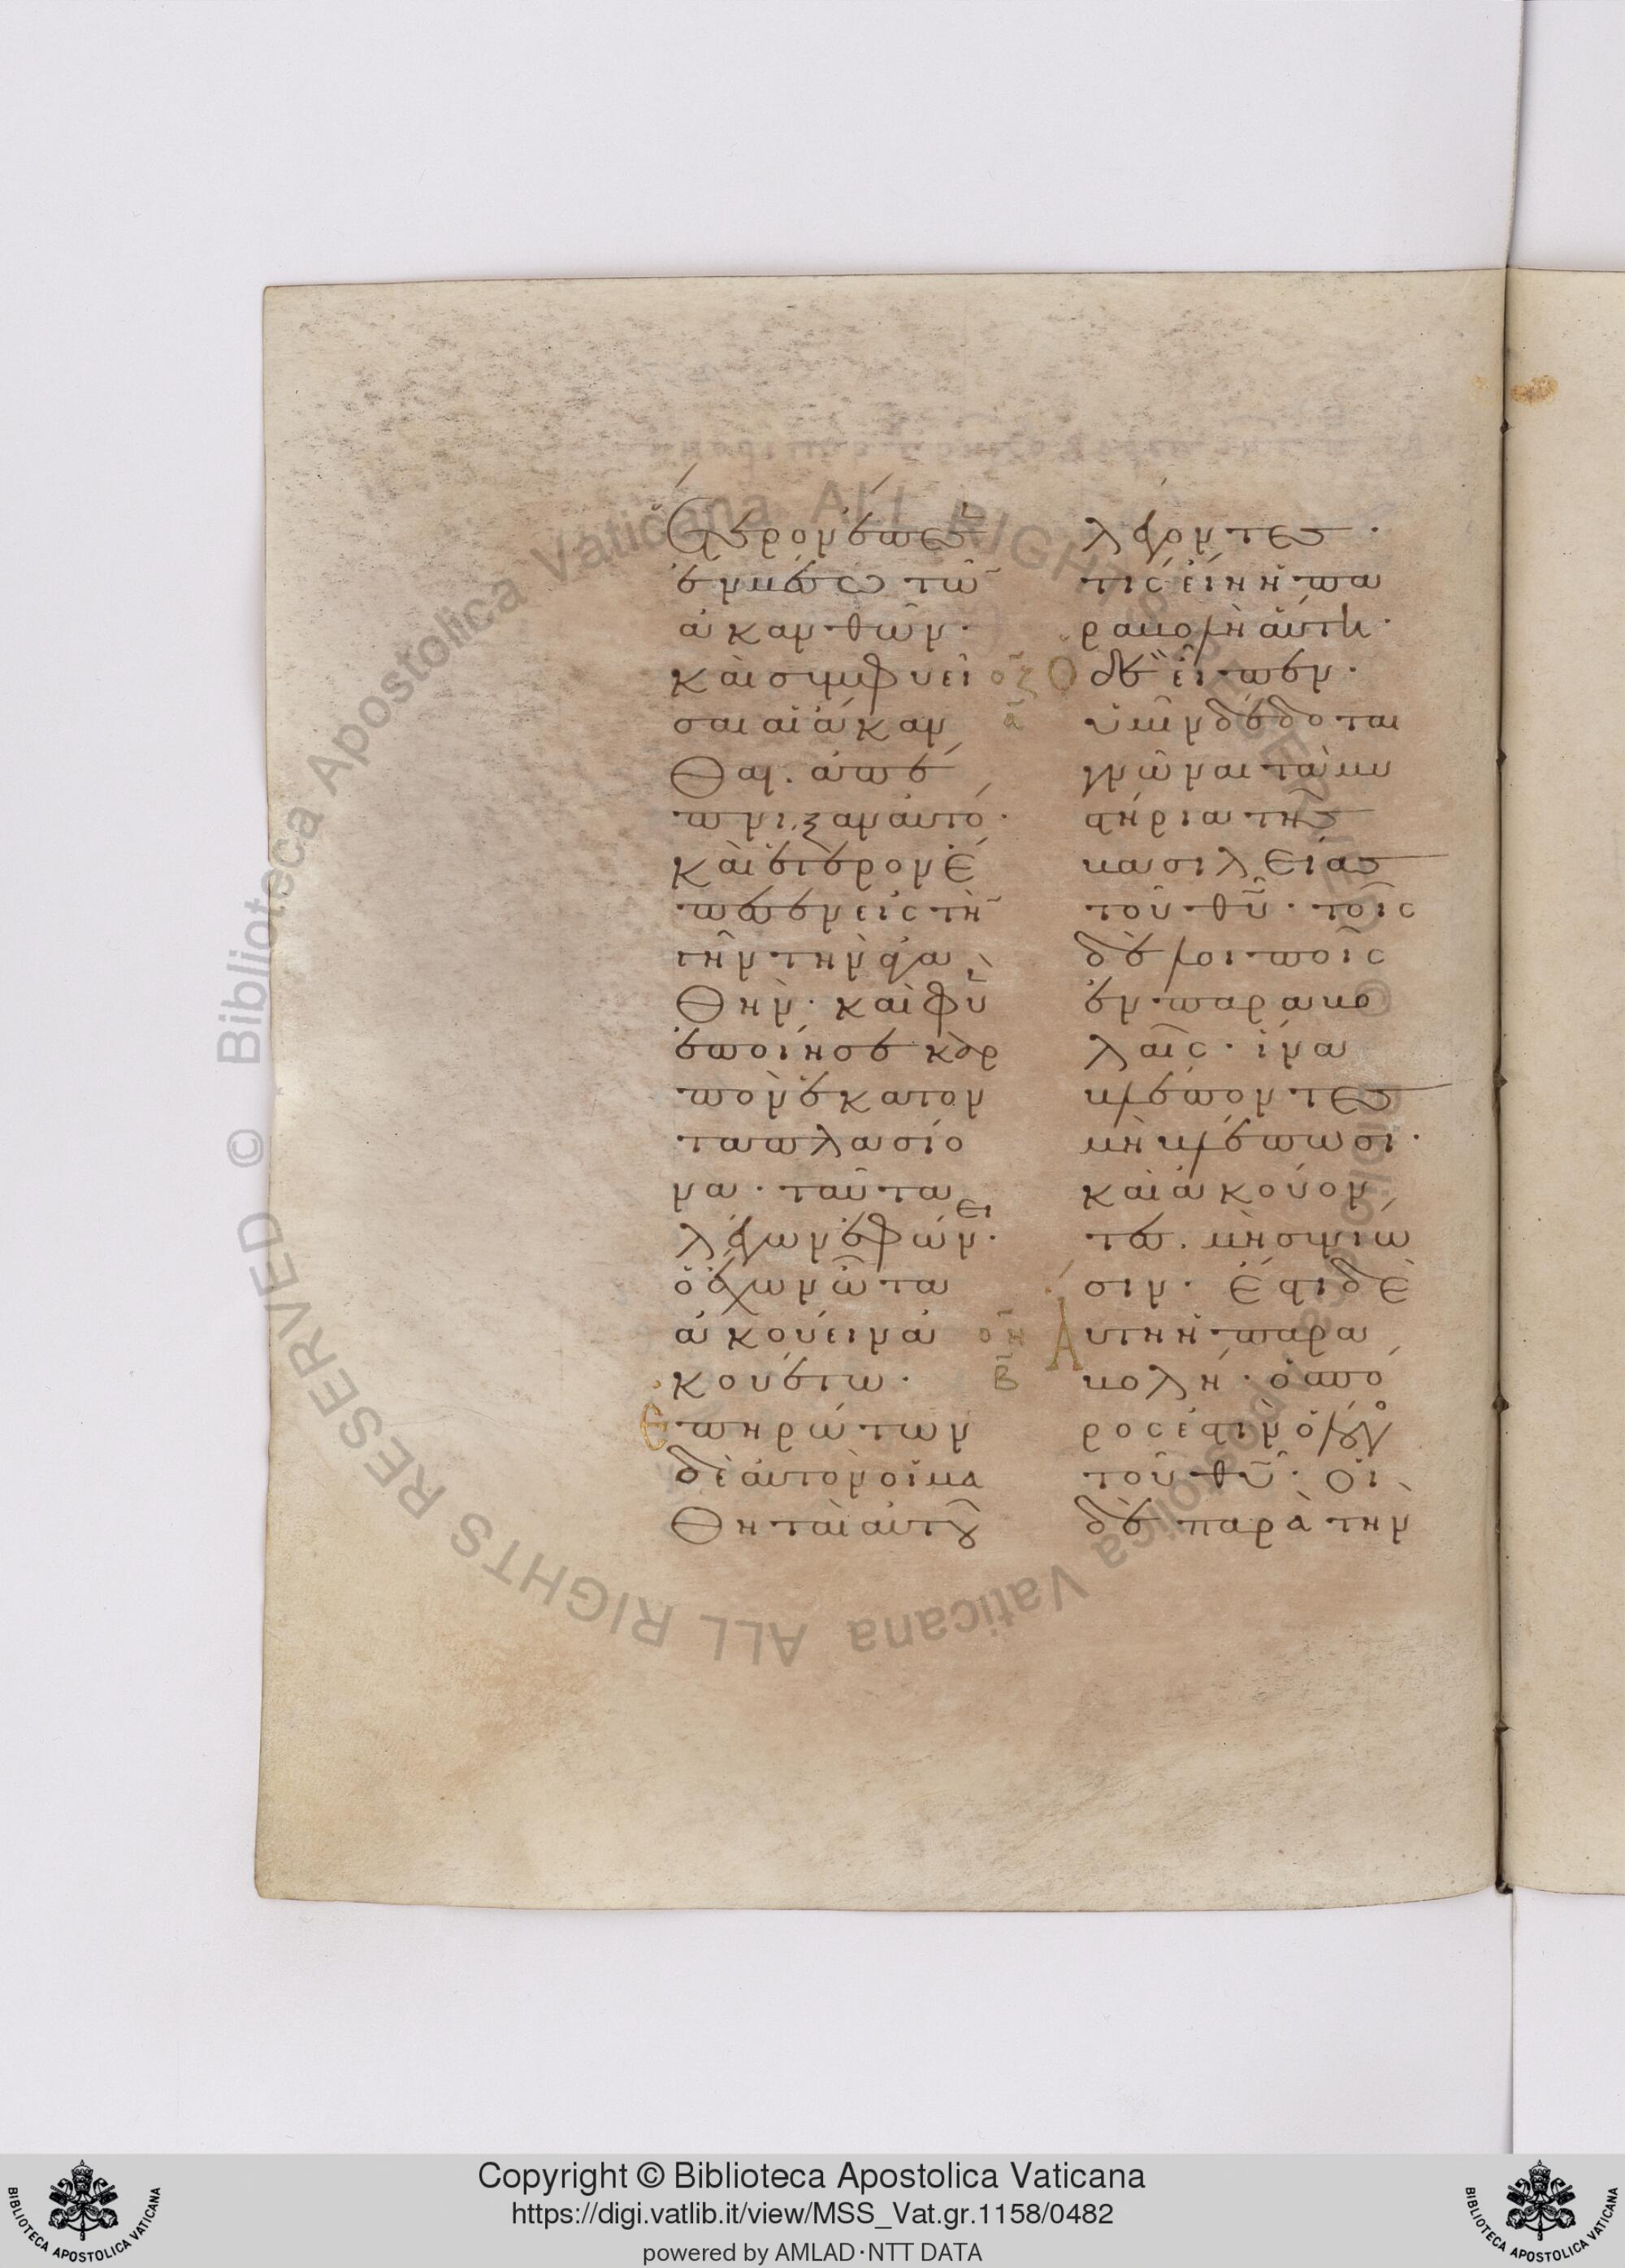 ἕτερον ἔπεσεν
ἐν μέσω τῶ̄
ἀκανθῶν·
καὶ συμφυεῖ
σαι αἱ ἄκαν
θαι· ἀπέ
πνιξαν αὐτό·
καὶ ἕτερον ἔ
πεσεν εἰς τὴ̄
γῆν τὴν ἀγα
θήν· καὶ φυὲ̄
ἐποίησε καρ
πὸν ἑκατον
ταπλασίο
να· ταῦτα
λέγων ἐφώνει·
ὁ ἔχων ὦτα
ἀκούειν ἀ
κουέτω·
Ἐπηρώτων
δὲ αὐτὸν οἱ μα
θηταὶ αὐτοῦ
λέγοντες·
τίς εἴη ἡ πα
ραβολὴ αὕτη·
οζ Ὁ δὲ εἶπεν·
α ὑμῖν δέδοται
γνῶναι τὰ μυ
στήρια τῆς
βασιλείας
τοῦ θ̄ῡ· τοῖς
δὲ λοιποῖς
ἐν παραβο
λαῖς· ἵνα
βλέποντες
μὴ βλέπωσι·
καὶ ἀκούον
τες μὴ συνιῶ
σιν· ἔστι δὲ
οη Αὕτη ἡ παρα
β βολή· ὁ σπό
ρος ἐστὶν ὁ λόγος
τοῦ θ̄ῡ· οἱ
δὲ παρὰ τὴν
© Biblioteca Apostolica Vaticana ALL RIGHTS RESERVED
© Biblioteca Apostolica Vaticana ALL RIGHTS RESERVED
Copyright © Biblioteca Apostolica Vaticana
https://digi.vatlib.it/view/MSS_Vat.gr.1158/0482
powered by AMLAD·NTT DATA
BIBLIOTECA APOSTOLICA VATICANA
BIBLIOTECA APOSTOLICA VATICANA